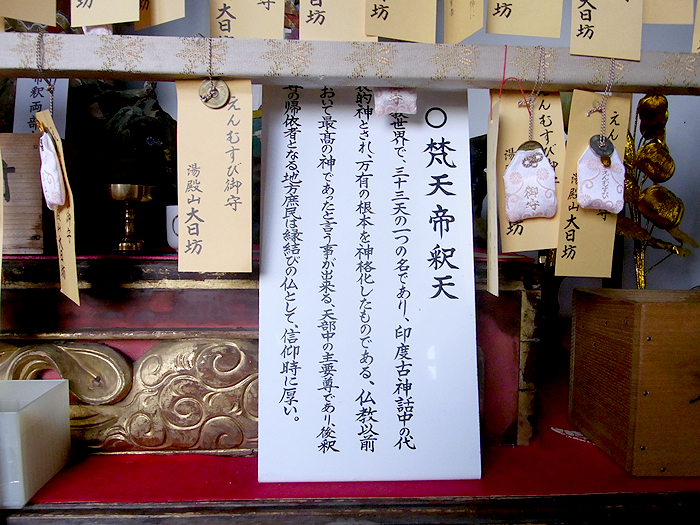 ○梵天帝釈天
世界で、三十三天の一つの名であり、印度古神話中の代
的神とされ、万有の根本を神格化したものである、仏教以前
おいて最高の神であったと言う事が出来る、天部中の主要尊であり、後釈
の帰依者となる地方庶民は縁結びの仏として、信仰時に厚い。
えんむすび御守
湯殿山大日坊
えん
湯殿山大日坊
むすび御守
坊
御守
大日坊
坊
坊
坊
大日坊
坊